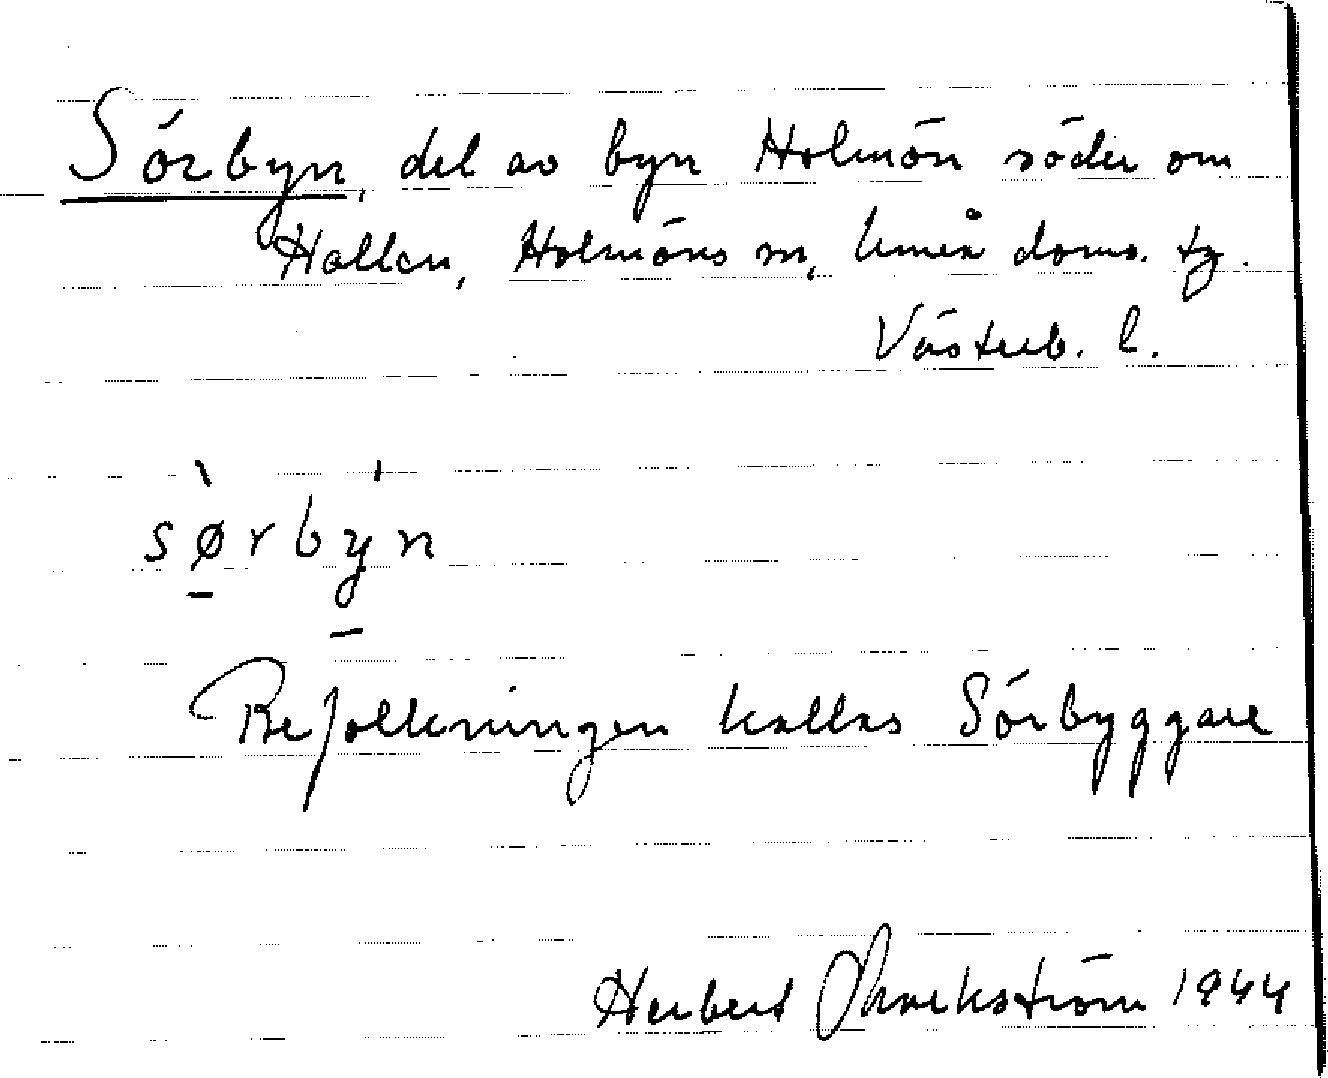 Sörbyn, del av byn Holmön söder om
Hallen, Holmöns sn, Umeå doms. tg.
Västerb. l.
sø̱̀rbý̱n
Befolkningen kallas Sörbyggare
Herbert Markström 1944